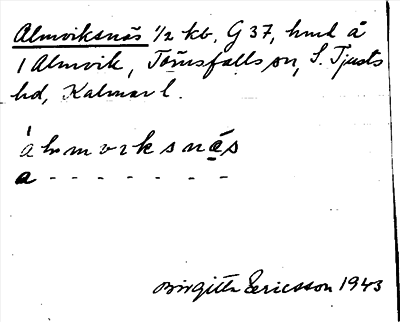 Almviksnäs 1/2 kb, G 37, hmd å
1 Almvik, Törnsfalls sn, S. Tjusts
hd, Kalmar l.
álmviksnäs
a - - - - - - -
Birgitta Ericsson 1943